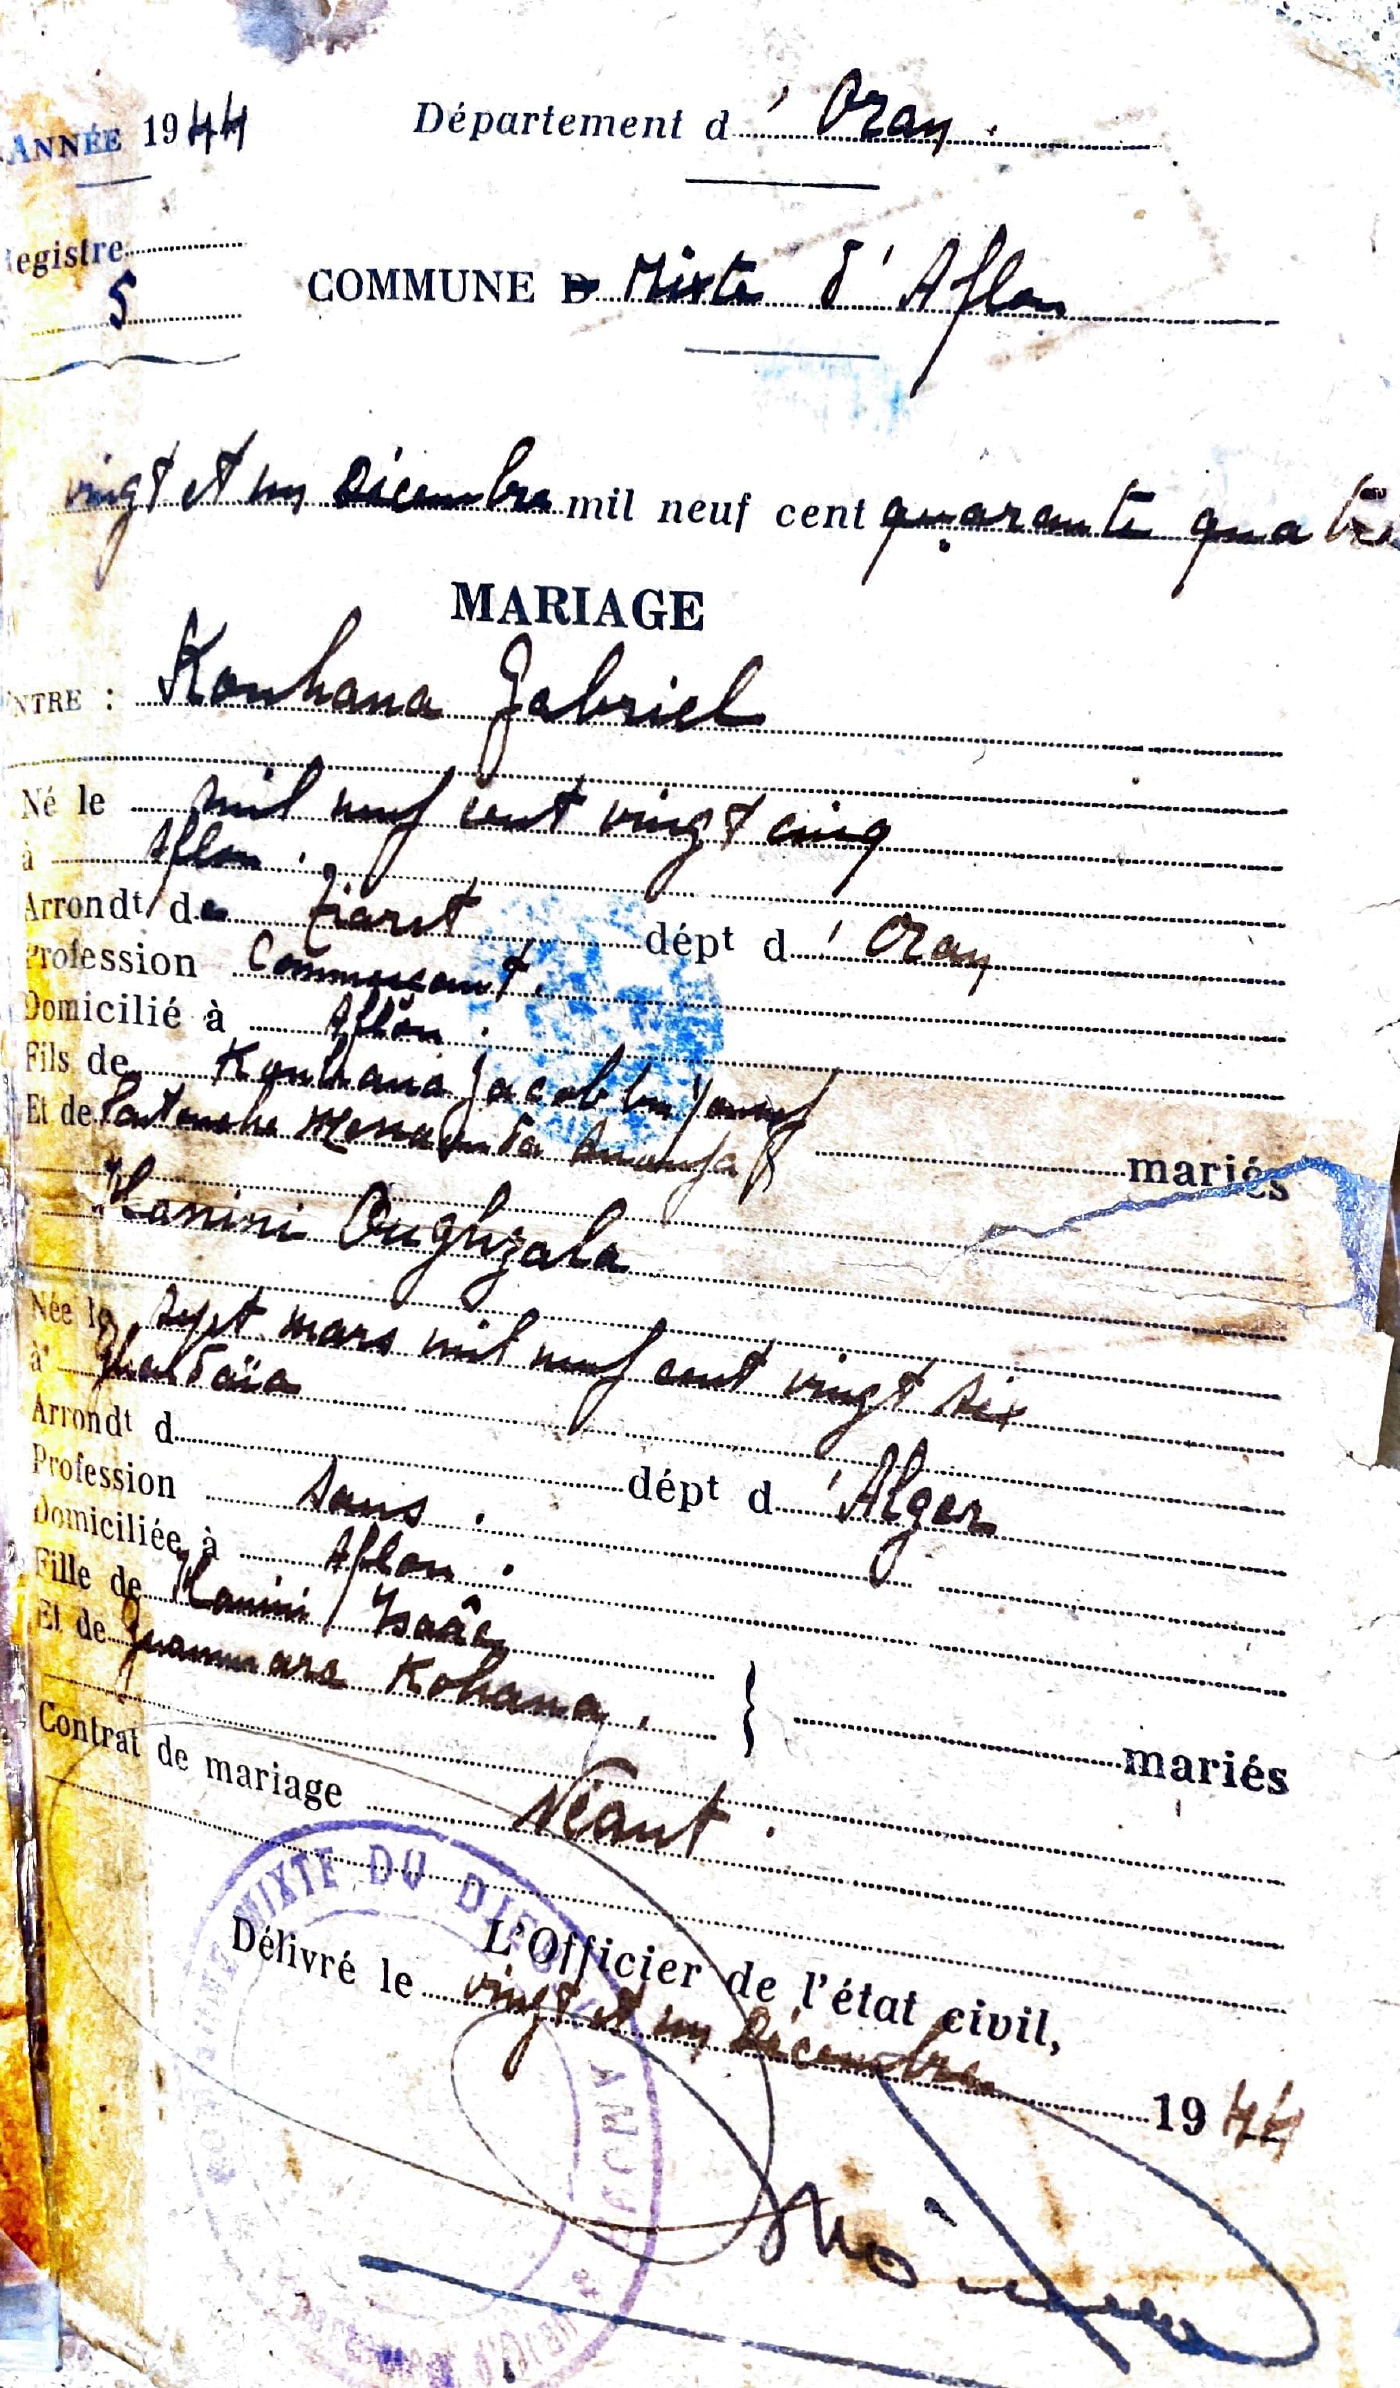 ANNÉE 1944
Département d' Oran.
Registre
5
COMMUNE D Mixte d'Aflou
vingt et un Décembre mil neuf cent quarante quatre
MARIAGE
ENTRE : Kouhana Gabriel
Né le mil neuf cent vingt cinq
à Aflou.
Arrondt de Tiaret dépt d' Oran
Profession Commerçant.
Domicilié à Aflou.
Fils de Kouhana Jacob ben Youcef
Et de mariés
Hanini Oughzala
Née le sept mars mil neuf cent vingt six
à Ghardaïa
Arrondt d dépt d' Alger
Profession Sans.
Domiciliée à Aflou.
Fille de Hanini Isaâc
Et de Kohana. mariés
Contrat de mariage Néant.
MIXTE DU DJEBEL AMOUR
L'Officier de l'état civil,
Délivré le vingt et un Décembre 1944